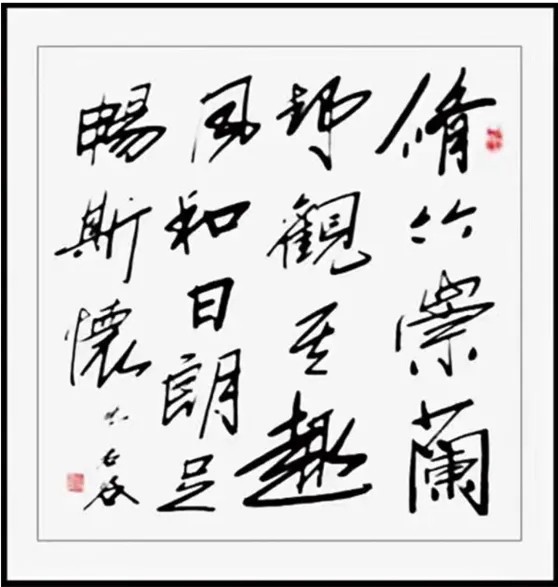 脩竹崇蘭
静觀其趣
風和日朗足
暢斯懷